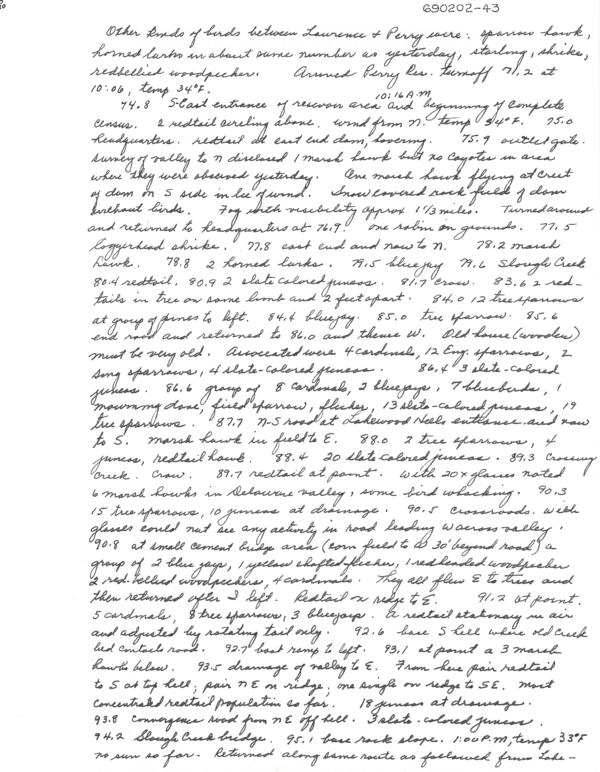 690202-43
Other kinds of birds between Lawrence & Perry were: sparrow hawk,
horned larks in about same number as yesterday, starling, shrike,
redbellied woodpecker. Arrived Perry Res. turnoff 71.2 at
10:06, temp 34°F.
10:16 A.M.
74.8 S-East entrance of reservoir area and beginning of complete
census. 2 redtail circling above. wind from N. temp 34°F. 75.0
headquarters. redtail at east end dam, hovering. 75.9 outlet gate.
Survey of valley to N disclosed 1 marsh hawk but no coyotes in area
where they were observed yesterday. One marsh hawk flying at crest
of dam on S side in lee of wind. Snow covered rock field of dam
without birds. Fog with visibility approx 1 1/3 miles. Turned around
and returned to headquarters at 76.9. One robin on grounds. 77.5
loggerhead shrike. 77.8 east end and now to N. 78.2 marsh
hawk. 78.8 2 horned larks. 79.5 bluejay 79.6 Slough Creek
80.4 redtail. 80.9 2 slate colored juncos. 81.7 crow. 83.6 2 red-
tails in tree on same limb and 2 feet apart. 84.0 12 tree sparrows
at group of pines to left. 84.4 bluejay. 85.0 tree sparrow. 85.6
end road and returned to 86.0 and thence W. Old house (wooden)
must be very old. Associated were 4 cardinals, 12 Eng. sparrows, 2
song sparrows, 4 slate-colored juncos. 86.4 3 slate-colored
juncos. 86.6 group of 8 cardinals, 2 bluejays, 7 bluebirds, 1
mourning dove, field sparrow, flicker, 13 slate-colored juncos, 19
tree sparrows. 87.7 N-S road at Lakewood Hills entrance and now
to S. marsh hawk in field to E. 88.0 2 tree sparrows, 4
juncos, redtail hawk. 88.4 20 slate colored juncos. 89.3 Crossing
creek. Crow. 89.7 redtail at point. With 20x glasses noted
6 marsh hawks in Delaware valley, some bird whacking. 90.3
15 tree sparrows, 10 juncos at drainage. 90.5 crossroads. With
glasses could not see any activity in road leading W across valley.
90.8 at small cement bridge area (corn field to W 30' beyond road) a
group of 2 blue jays, 1 yellow shafted flicker, 1 redheaded woodpecker
2 red-bellied woodpeckers, 4 cardinals. They all flew E to trees and
then returned after I left. Redtail on ridge to E. 91.2 at point.
5 cardinals, 8 tree sparrows, 3 bluejays. A redtail stationary in air
and adjusted by rotating tail only. 92.6 base S hill where old creek
bed contacts road. 92.7 boat ramp to left. 93.1 at point a 3 marsh
hawks below. 93.5 drainage of valley to E. From here pair redtail
to S at top hill; pair NE on ridge; one single on ridge to SE. most
concentrated redtail population so far. 18 juncos at drainage.
93.8 convergence road from NE off hill. 3 slate-colored juncos.
94.2 Slough Creek bridge. 95.1 base rock slope. 1:00 P.M, temp 33°F
no sun so far. Returned along same route as followed from Lake-